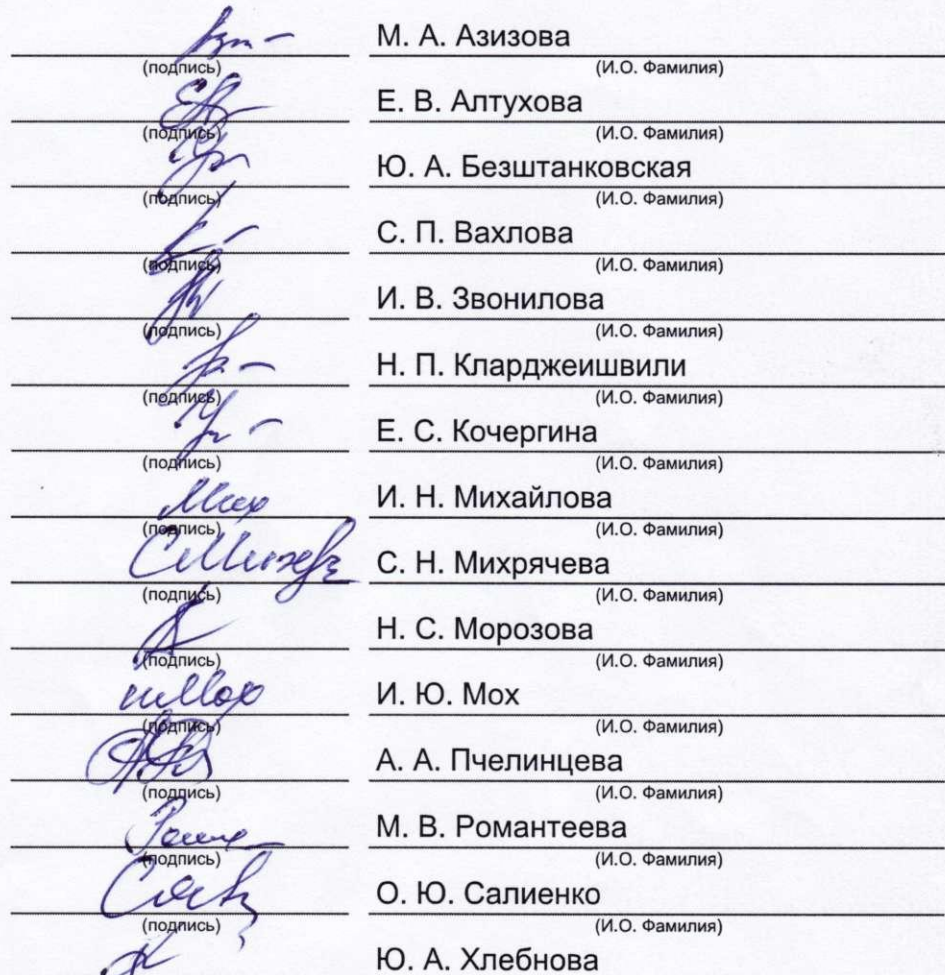 М. А. Азизова
(подпись) (И.О. Фамилия)
Е. В. Алтухова
(подпись) (И.О. Фамилия)
Ю. А. Безштанковская
(подпись) (И.О. Фамилия)
С. П. Вахлова
(подпись) (И.О. Фамилия)
И. В. Звонилова
(подпись) (И.О. Фамилия)
Н. П. Кларджеишвили
(подпись) (И.О. Фамилия)
Е. С. Кочергина
(подпись) (И.О. Фамилия)
И. Н. Михайлова
(подпись) (И.О. Фамилия)
С. Н. Михрячева
(подпись) (И.О. Фамилия)
Н. С. Морозова
(подпись) (И.О. Фамилия)
И. Ю. Мох
(подпись) (И.О. Фамилия)
А. А. Пчелинцева
(подпись) (И.О. Фамилия)
М. В. Романтеева
(подпись) (И.О. Фамилия)
О. Ю. Салиенко
(подпись) (И.О. Фамилия)
Ю. А. Хлебнова